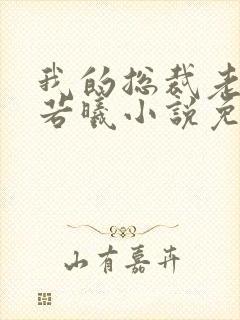 我的总裁老
若曦小说免
山有嘉卉